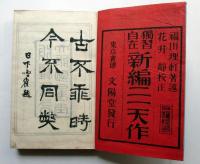 福田理軒著述
花井静校正
獨習
自在
新編二一天作
東京書肆
文陽堂發行
古不乖時
今不同獘
日下